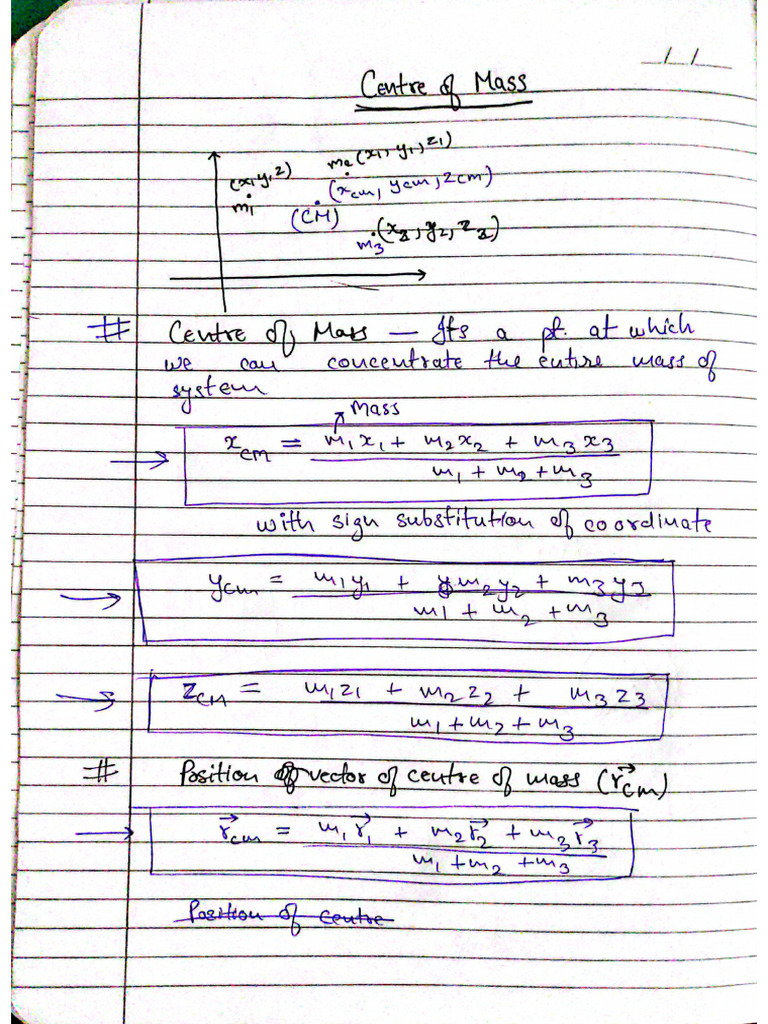 / /
Centre of Mass
m2 (x1, y1, z1)
(x, y, z)
(xcm, ycm, zcm)
m1
(CM)
m3 (x2, y2, z2)
# Centre of Mass — Its a pt. at which
we can concentrate the entire mass of
system
Mass
xcm = m1x1 + m2x2 + m3x3
m1 + m2 + m3
with sign substitution of coordinate
ycm = m1y1 + m2y2 + m3y3
m1 + m2 + m3
zcm = m1z1 + m2z2 + m3z3
m1 + m2 + m3
# Position vector of centre of mass (r⃗cm)
r⃗cm = m1r⃗1 + m2r⃗2 + m3r⃗3
m1 + m2 + m3
Position of centre